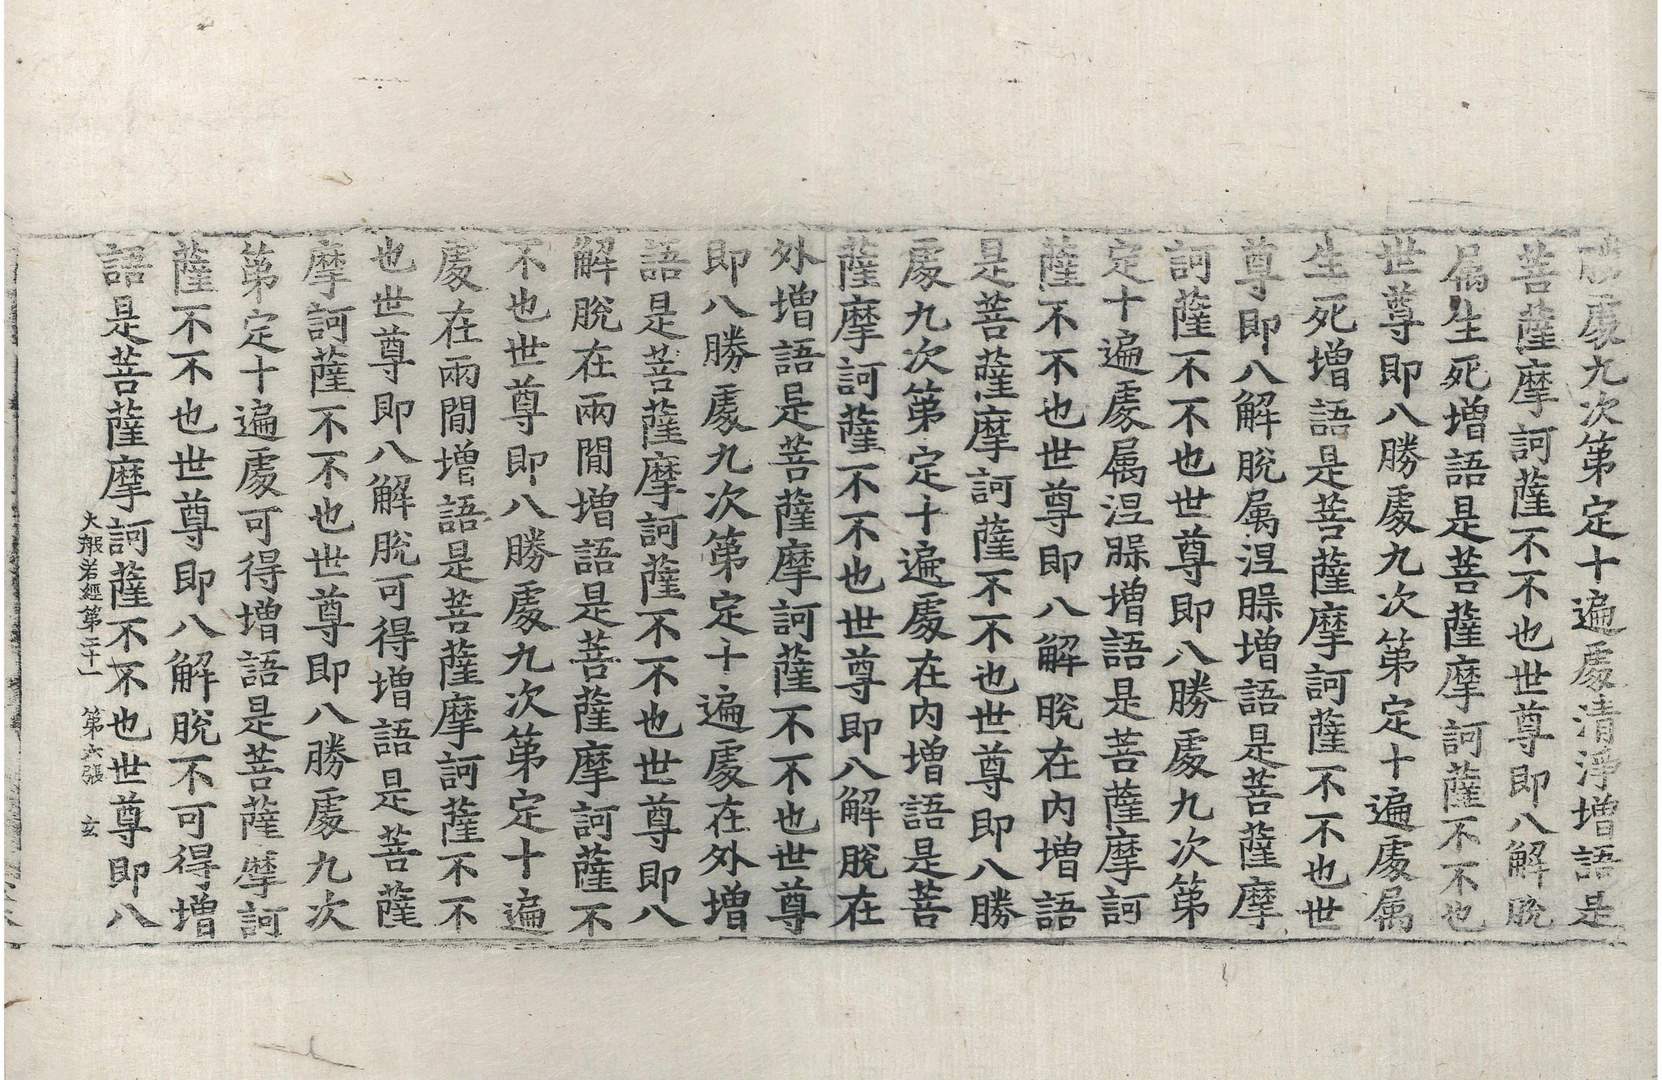 勝處九次第定十遍處清淨增語是
菩薩摩訶薩不不也世尊即八解脫
属生死增語是菩薩摩訶薩不不也
世尊即八勝處九次第定十遍處属
生死增語是菩薩摩訶薩不不也世
尊即八解脫属涅槃增語是菩薩摩
訶薩不不也世尊即八勝處九次第
定十遍處属涅槃增語是菩薩摩訶
薩不不也世尊即八解脫在内增語
是菩薩摩訶薩不不也世尊即八勝
處九次第定十遍處在内增語是菩
薩摩訶薩不不也世尊即八解脫在
外增語是菩薩摩訶薩不不也世尊
即八勝處九次第定十遍處在外增
語是菩薩摩訶薩不不也世尊即八
解脫在兩閒增語是菩薩摩訶薩不
不也世尊即八勝處九次第定十遍
處在兩閒增語是菩薩摩訶薩不不
也世尊即八解脫可得增語是菩薩
摩訶薩不不也世尊即八勝處九次
第定十遍處可得增語是菩薩摩訶
薩不不也世尊即八解脫不可得增
語是菩薩摩訶薩不不也世尊即八
大般若經第二十一 第六張 玄